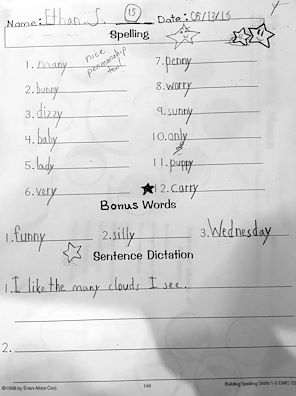 Name: Ethan. S. 15 Date: 05/13/15
Spelling
nice penmanship too!
1. many 7. penny
2. bunny 8. worry
3. dizzy 9. sunny
4. baby 10. only
5. lady 11. puppy
6. very 12. carry
Bonus Words
1. funny 2. silly 3. Wednesday
Sentence Dictation
1. I like the many clouds I see.
2.
©1998 by Evan-Moor Corp. 146 Building Spelling Skills 1-2 EMC 72